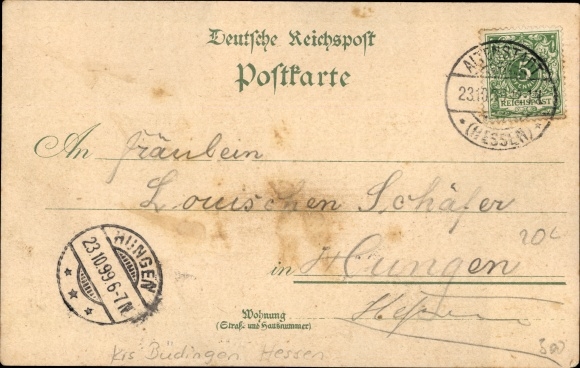 Deutsche Reichspost
Postkarte
ALTENSTADT
23.10.
(HESSEN)
5
REICHSPOST
An Fräulein
Louischen Schäfer
in Hungen
Hessen
HUNGEN
23.10.99.6-7N
Wohnung
(Straß- und Hausnummer)
Krs Büdingen Hessen